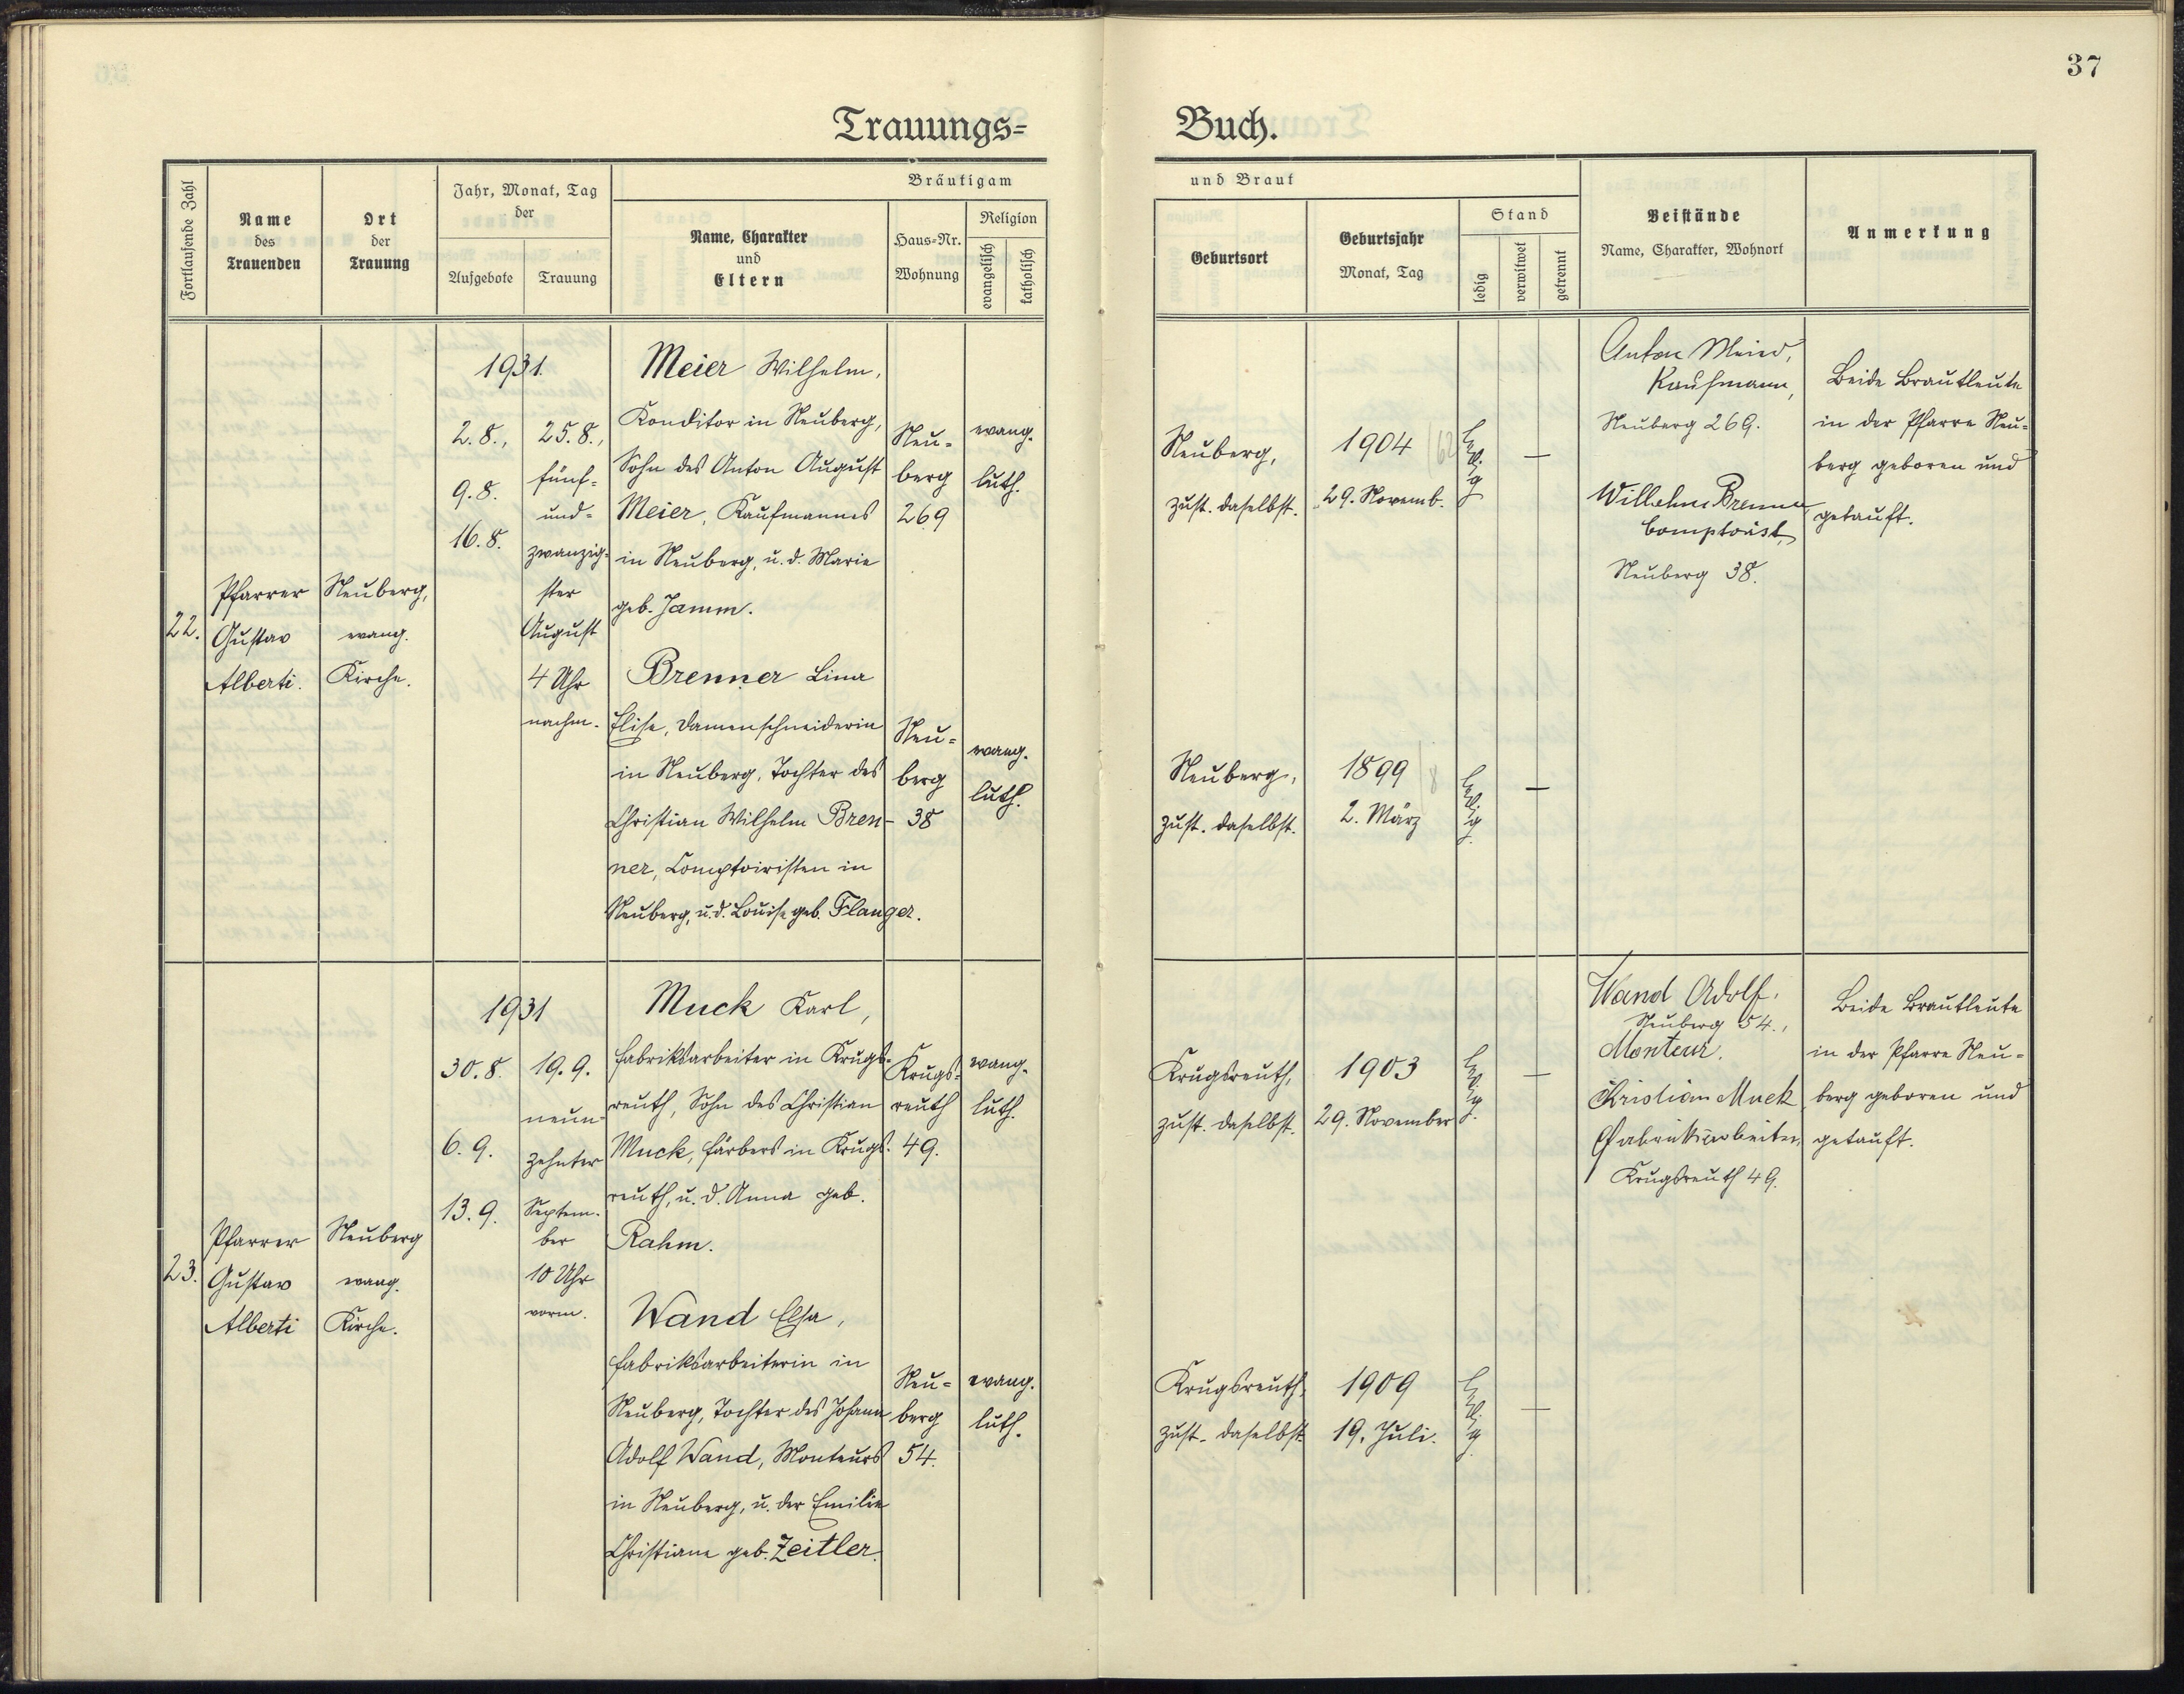 37
Trauungs= Buch.
Fortlaufende Zahl
Name
des
Trauenden
Ort
der
Trauung
Jahr, Monat, Tag
der
Aufgebote
Trauung
Bräutigam
Name, Charakter
und
Eltern
Haus=Nr.
Wohnung
Religion
evangelisch
katholisch
und Braut
Geburtsort
Geburtsjahr
Monat, Tag
Stand
ledig
verwitwet
getrennt
Beistände
Name, Charakter, Wohnort
Anmerkung
22.
Pfarrer
Gustav
Alberti.
Neuberg,
evang.
Kirche.
1931.
2.8.,
9.8.
16.8.
25.8.,
fünf=
und=
zwanzig=
ster
August
4 Uhr
nachm.
Meier Wilhelm,
Konditor in Neuberg,
Sohn des Anton August
Meier, Kaufmannes
in Neuberg, u. d. Marie
geb. Jamm.
Neu=
berg
269
evang.
luth.
Neuberg,
zust. daselbst.
1904
29. Novemb.
ledig
—
Anton Meier,
Kaufmann,
Neuberg 269.
Wilhelm Brenner
Comptoirist,
Neuberg 38.
Beide Brautleute
in der Pfarre Neu=
berg geboren und
getauft.
Brenner Lina
Elise, Damenschneiderin
in Neuberg, Tochter des
Christian Wilhelm Bren-
ner, Comptoiristen in
Neuberg, u. d. Louise geb. Flanger.
Neu=
berg
38
evang.
luth.
Neuberg,
zust. daselbst.
1899
2. März
ledig.
—
23.
Pfarrer
Gustav
Alberti
Neuberg
evang.
Kirche.
1931
30.8.
6.9.
13.9.
19.9.
neun=
zehnter
Septem-
ber
10 Uhr
vorm.
Muck Karl,
Fabriksarbeiter in Krugs-
reuth, Sohn des Christian
Muck, Färbers in Krugs-
reuth, u. d. Anna geb.
Rahm.
Krugs=
reuth
49.
evang.
luth.
Krugsreuth,
zust. daselbst.
1903
29. November
ledig.
—
Wand Adolf,
Neuberg 54.,
Monteur.
Kristian Muck
Fabriksarbeiter,
Krugsreuth 49.
Beide Brautleute
in der Pfarre Neu=
berg geboren und
getauft.
Wand Elsa,
Fabriksarbeiterin in
Neuberg, Tochter des Johann
Adolf Wand, Monteurs
in Neuberg, u. der Emilie
Christiane geb. Zeitler.
Neu=
berg
54.
evang.
luth.
Krugsreuth,
zust. daselbst.
1909
19. Juli.
ledig
—